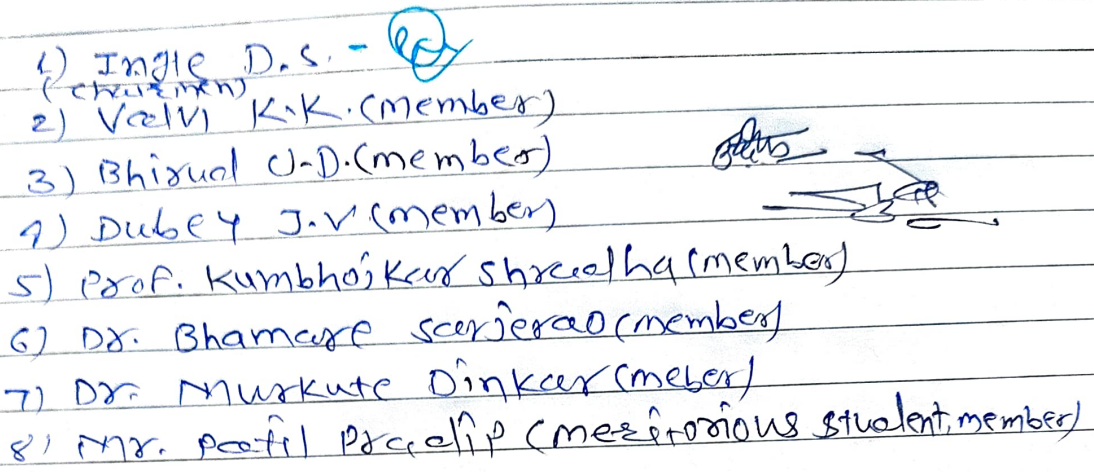 1) Ingle D.S. -
(Chairmen)
2) Valvi K.K. (member)
3) Bhirud U.D. (member)
4) Dubey J.V (member)
5) Prof. Kumbhojkar Shradha (member)
6) Dr. Bhamare Sarjerao (member)
7) Dr. Murkute Dinkar (meber)
8) Mr. Patil Pradip (meritorious student, member)